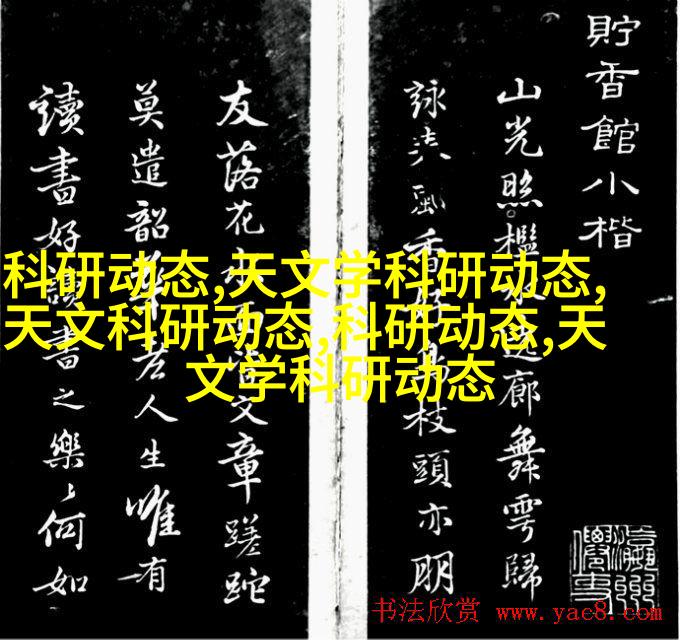 貯香館小楷
山光照檻水遶廊舞雩歸
詠風香好鳥枝頭亦朋
友落花水面皆文章蹉跎
莫遣韶華老人生唯有
讀書好讀書之樂〻何如
科研动态,天文学科研动态,
天文科研动态,科研动态,天
文学科研动态
书法欣赏 www.yac8.com